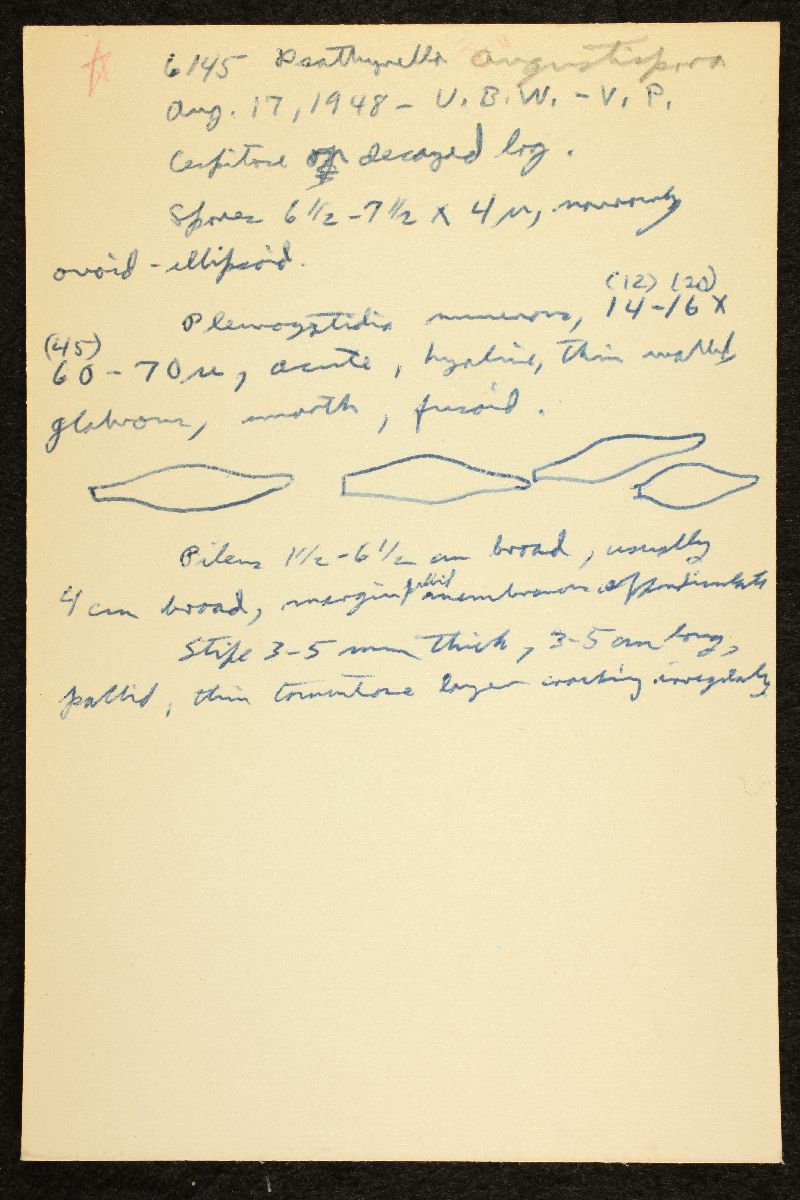 6145 Psathyrella "a" angustispora
Aug. 17, 1948 - U.B.W. - V.P.
Cespitose decayed log.
Spores 6 1/2 - 7 1/2 X 4 µ, narrowly
ovoid-ellipsoid.
(12) (20)
Pleurocystidia numerous, 14-16 X
(45)
60-70 µ, acute, hyaline, thin walled
glabrous, smooth, fusoid.
Pileus 1 1/2 - 6 1/2 cm broad, usually
pallid
4 cm broad, margin membranous appendiculate
Stipe 3-5 mm thick, 3-5 cm long,
pallid, thin tomentose layer cracking irregularly